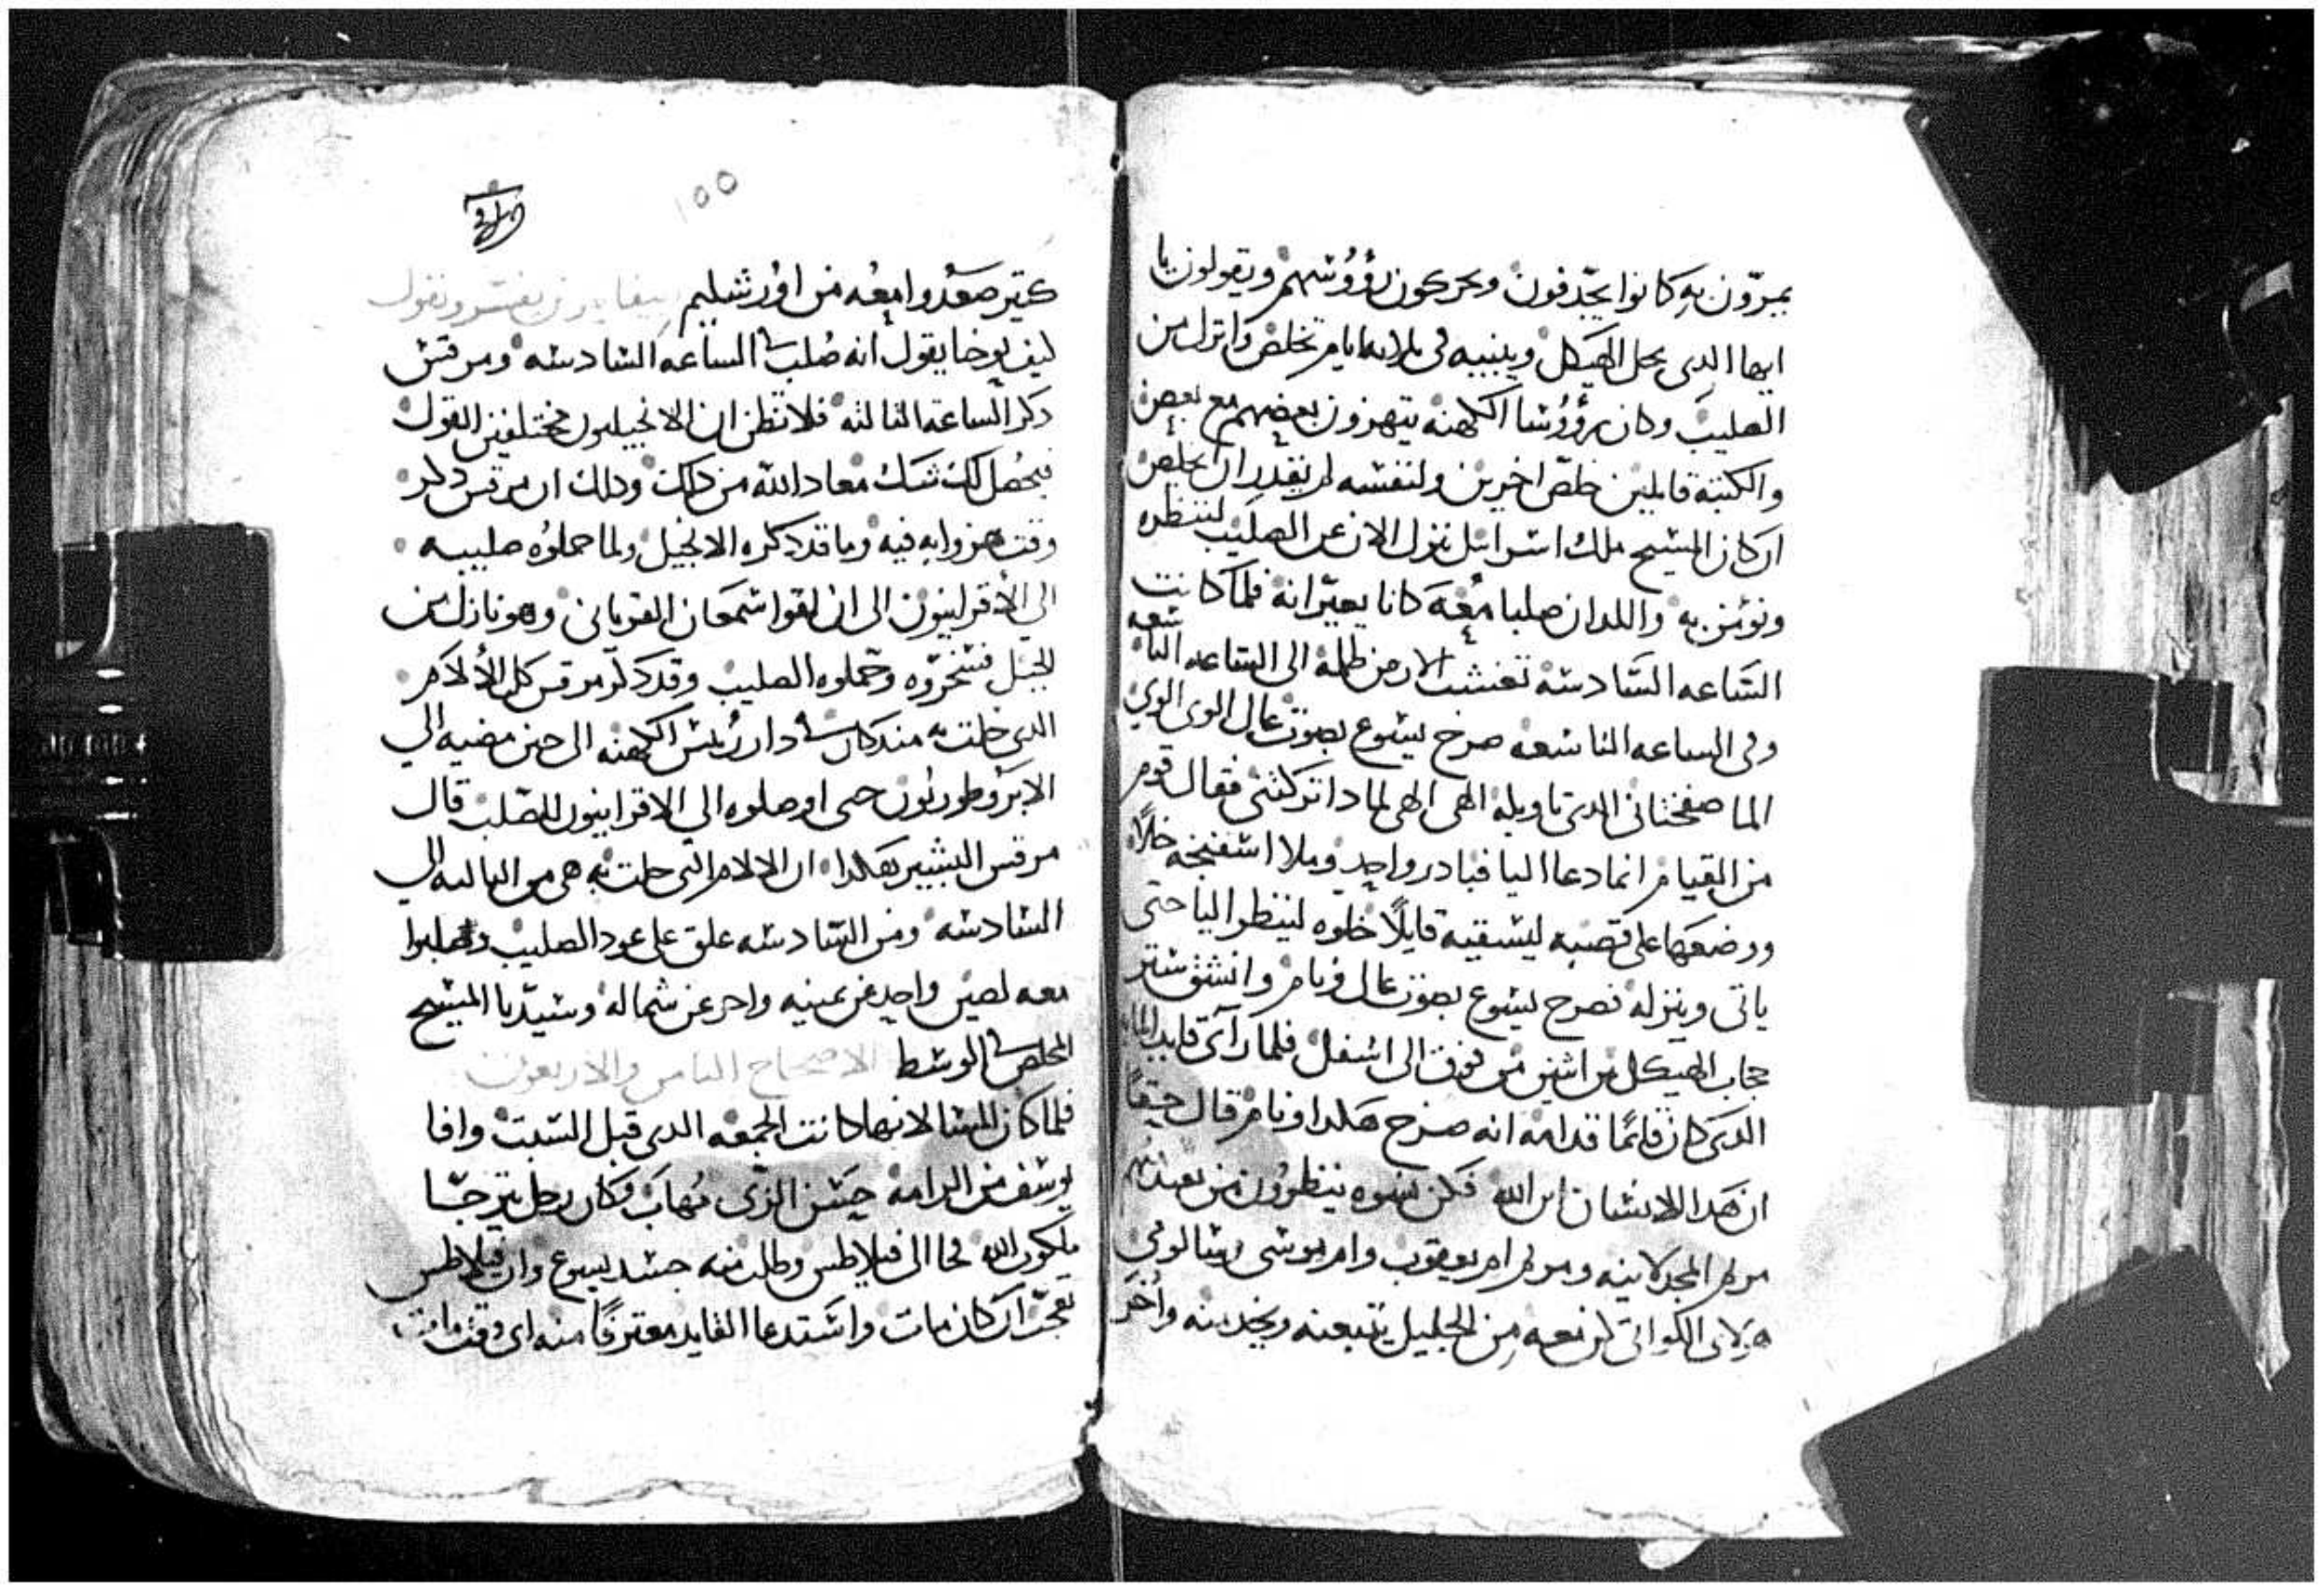 يمرّون به كانوا يجّدفون ويحركون رؤوسهم ويقولون يا
ايها الدى يحل الهيكل ويبنيه فى تلاته ايام تخلص وانزل من
الصليب وكان رؤوسا الكهنه يتهزون بعضهم مع بعض
والكتبه قايلين خلّص اخيرين ولنفسه لم يقدر ان يخلص
ان كان المسيح ملك اسرايل ينزل الان عن الصليب لننظره
ونؤمن به واللدان صلبا معه كانا يعيّرانه فلما كانت
السّاعه السّادسه تغشت الارض ظلمه الى الساعه التاسعه
وفى الساعه التاسعه صرخ يسوع بصوت عال الوى الوي
الما صفختانى الدى تاويله الهى الهى لمادا تركتنى فقال قوم
من القيام انما دعا اليا فبادر واحد وملا اسفنجه خلاً
ووضعها على قصبه ليسقيه قايلاً خلوه لينظر اليا حتى
ياتى وينزله فصرخ يسوع بصوت عال وفام وانشق ستر
حجاب الهيكل من اثنين من فوق الى اسفل فلما رآى قايد المايه
الدى كان قايمًا قدامه انه صرخ هكدا وفام قال حقاً
ان هدا الانسان ابن الله فكن نسوه ينظرون من بعيد
مريم المجدلانيه ومريم ام يعقوب وام يوسى وسالومى
هولاى اللواتى كن معه من الجليل يتبعنه ويخدمنه وأخر
١٥٥
كتير صعدوا معه من اؤرشليم
ليف يوحنا يقول انه صلب فى الساعه السادسه ومرقس
دكر الساعه التالته فلا تظن ان الانجيليون مختلفين القول
فيحصل لك شك معاد الله من دلك ودلك ان مرقس دكر
وقت هزوا به فيه وما قد دكره الانجيل ولما حملوه صليبه
الى الأقرانيون الى ان لقوا سمعان القريانى وهو نازل من
الجبل فسخروه وحملوه الصليب وقد دكر مرقس كل الألام
الدى حلت به مند كان فى دار رئيس الكهنه الى حين مضيه الي
الابروطوريون حتى اوصلوه الي الاقرانيون للصلب قال
مرقس البشير هكدا ان الالام التى حلت به هى من التالته الى
السادسه ومن السّادسه علق على عود الصليب وصلبوا
معه لصين واحد عن يمينه واحر عن شماله وسيّدنا المسيح
المخلص فى الوسط الاصحاح التامن والاربعون
فلما كان المسا لانها كانت الجمعه الدى قبل السبت وافا
يوسف من الرامه حسن الزّى مهاب وكان رجل يترجّا
ملكوت الله فجا الى فيلاطس وطلب منه جسد يسوع وان فيلاطس
تعجّب ان كان مات واستدعا القايد معترفًا منه اى وقت مات